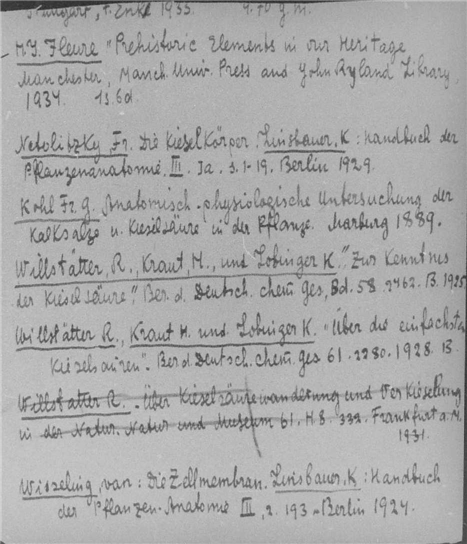 Stuttgart, F. Enke 1935. 4.70 g.m.
H.J. Fleure "Prehistoric Elements in our Heritage
Manchester, Manch. Univ. Press and John Ryland Library,
1934. 1s.6d.
Netolitzky Fr. Die Kieselkörper. Linsbauer, K: Handbuch der
Pflanzenanatomie. III. Ia. S. 1-19. Berlin 1929.
Kohl Fr. G. Anatomisch-physiologische Untersuchung der
Kalksalze u. Kieselsäure in der Pflanze. Marburg 1889.
Willstätter, R., Kraut, H., und Lobinger K. "Zur Kenntnes
der Kieselsäure". Ber. d. Deutsch. chem. Ges, Bd. 58 2462. B. 1925
Willstätter R., Kraut H. und Lobinger K. "Über die einfachsten
Kieselsäuren". Ber d. Deutsch. chem. ges 61. 2280. 1928. B.
Willstatter R. - Über Kieselsäurewanderung und Verkieselung
in der Natur. Natur und Museum 61. H.8 332. Frankfurt a.M.
1931.
Wisseling, van: Die Zellmembran. Linsbauer, K: Handbuch
der Pflanzen-Anatomie III, 2. 193 - Berlin 1924.